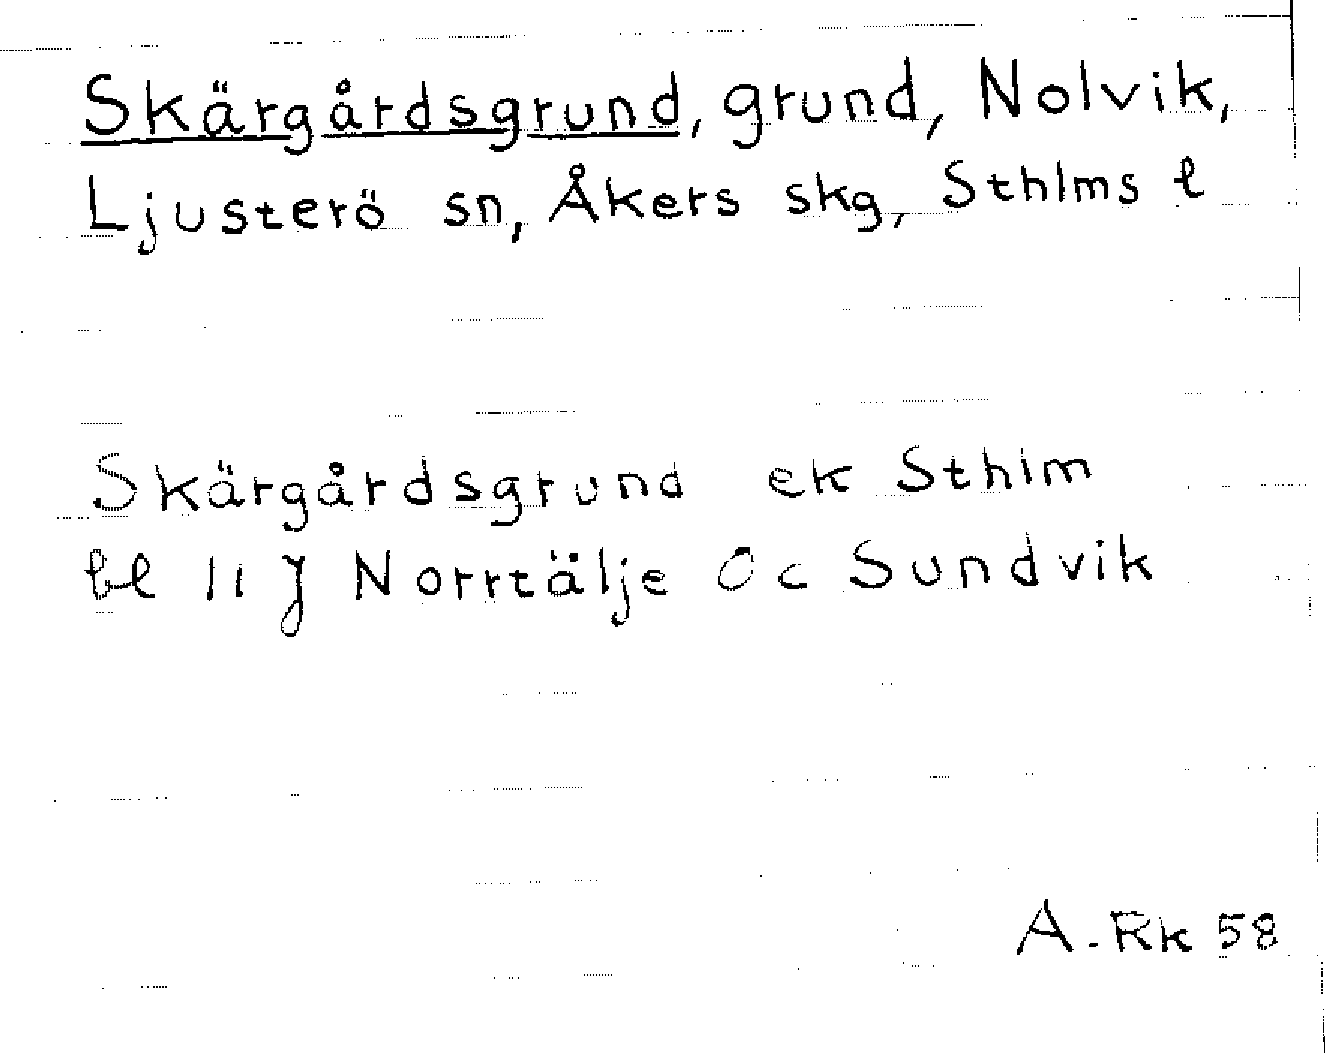 Skärgårdsgrund, grund, Nolvik,
Ljusterö sn, Åkers skg, Sthlms l
Skärgårdsgrund ek Sthlm
bl 11 J Norrtälje Öc Sundvik
A-Rk 58